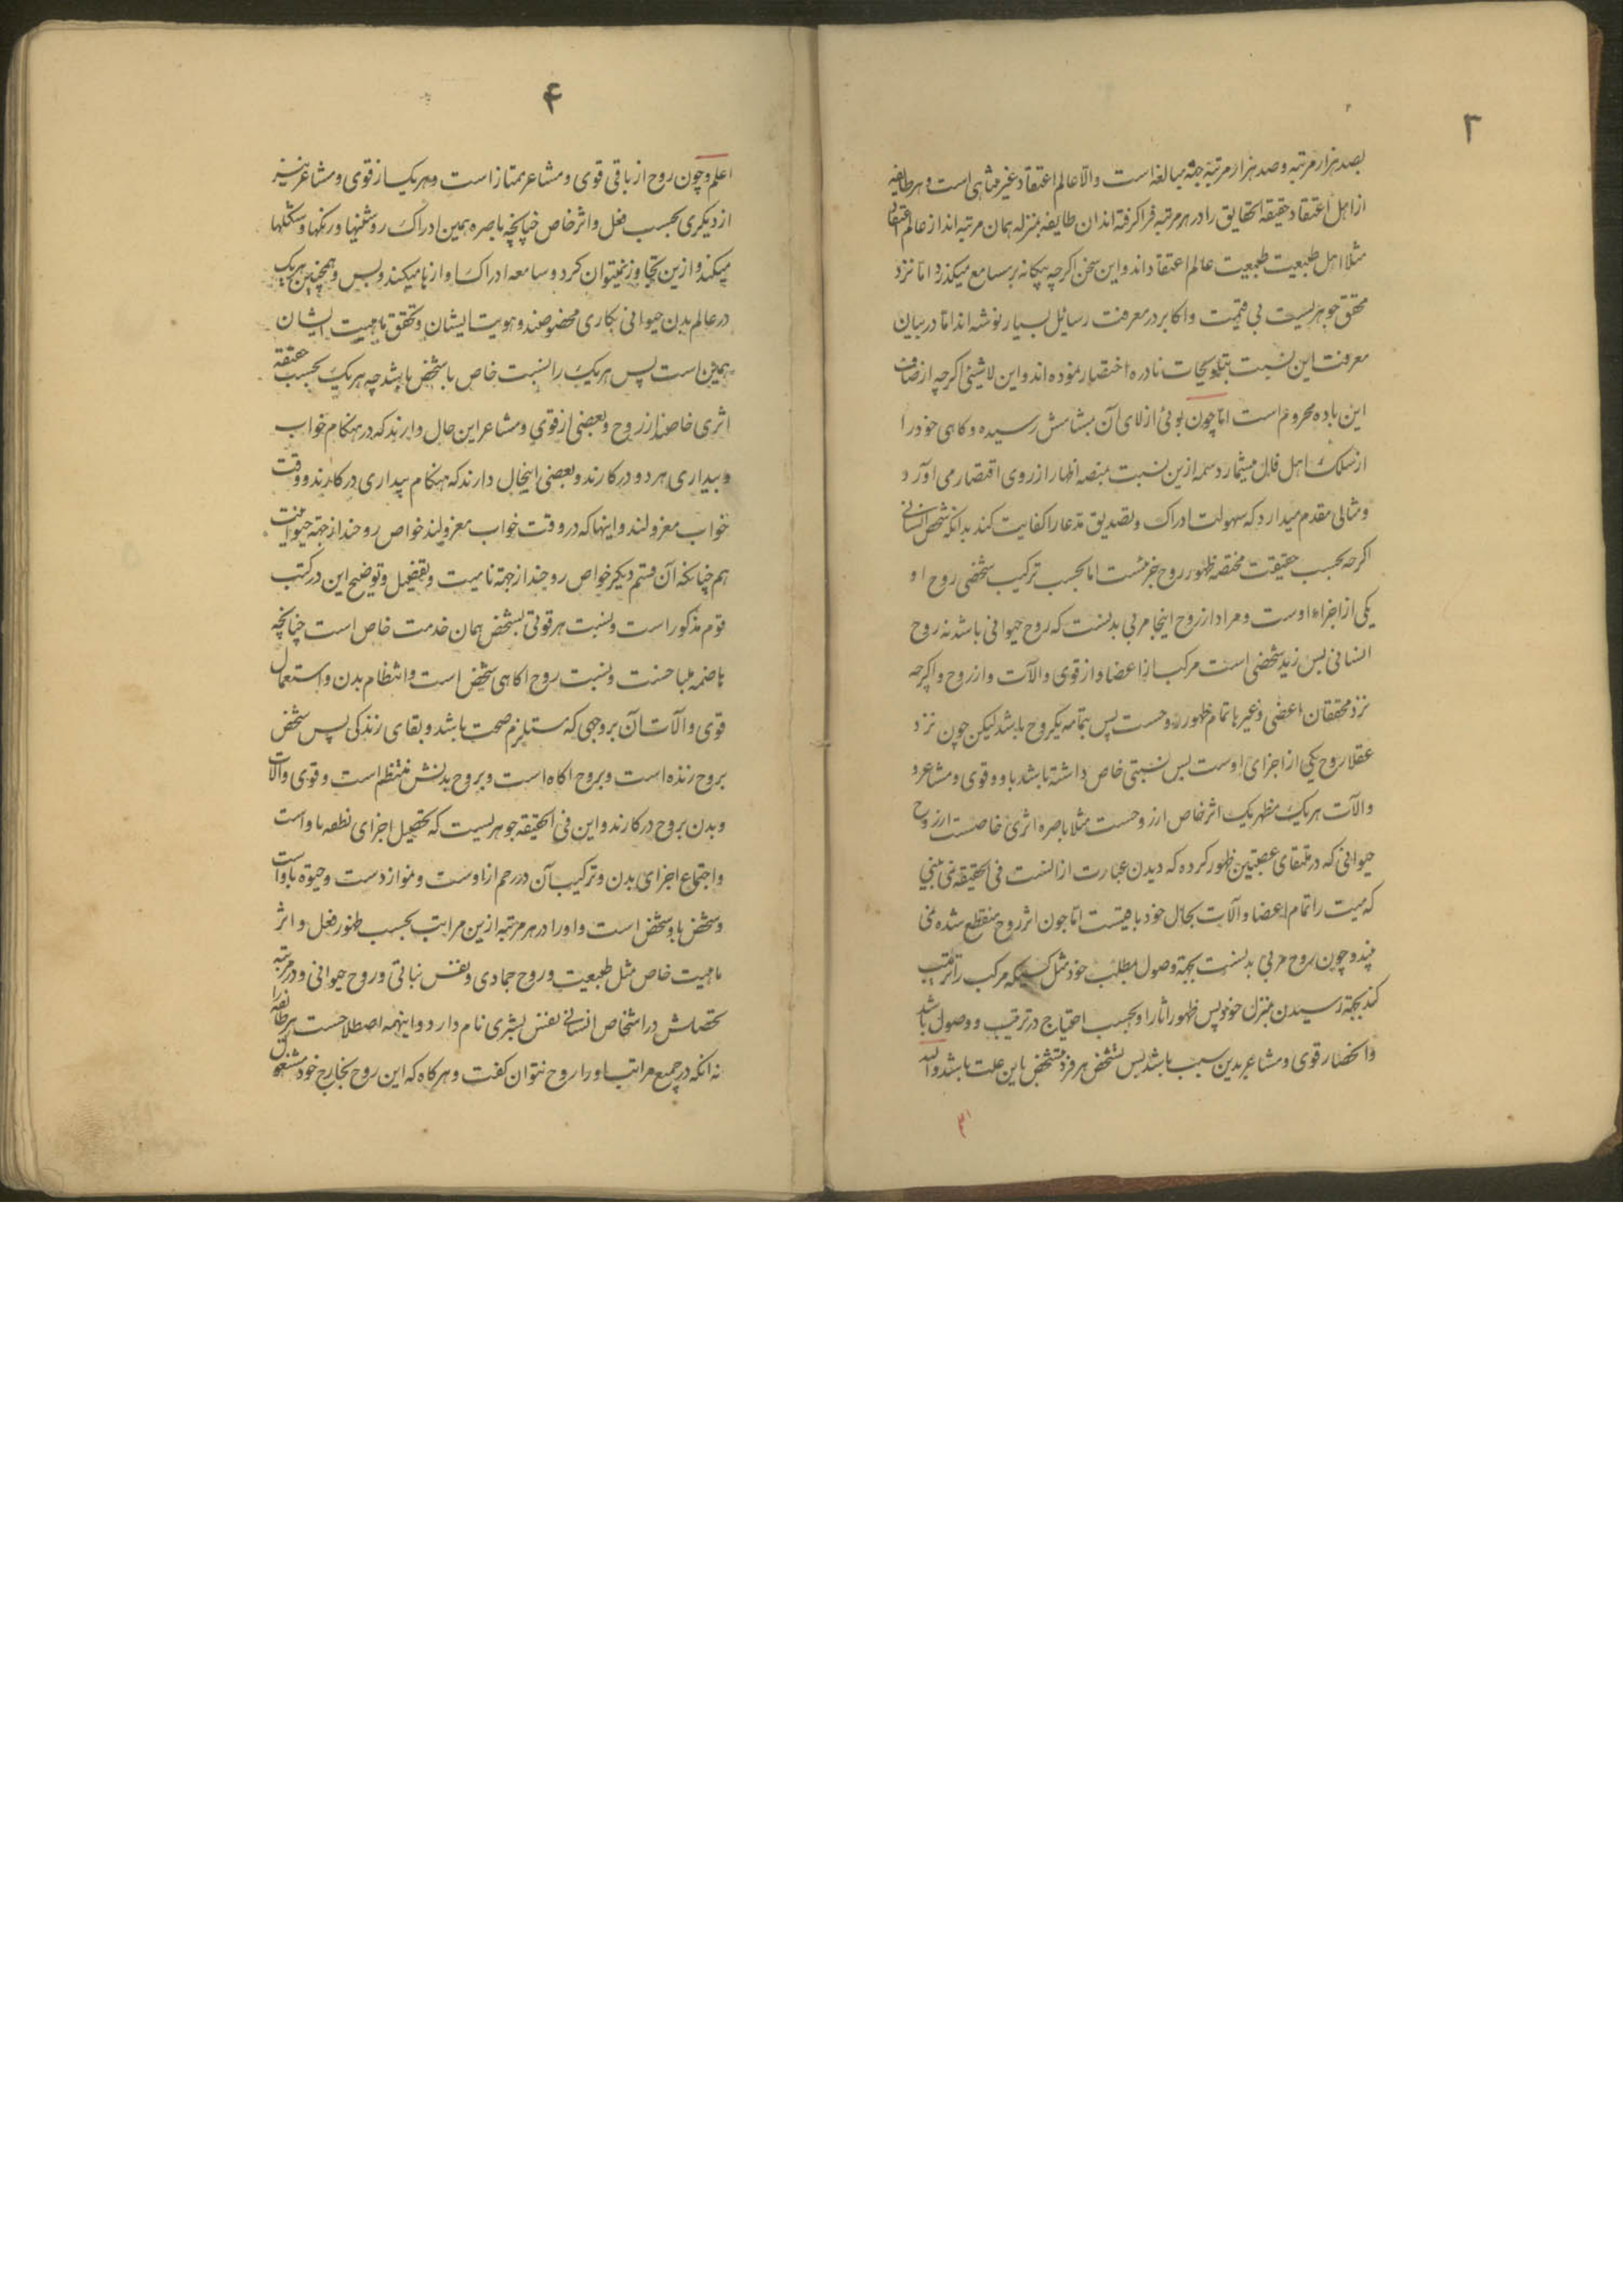 ۳
بصد هزار مرتبه و صد هزار مرتبه جهة مبالغه است و الا عالم اعتقاد غیر متناهی است و هر طایفه
از اهل اعتقاد حقیقة الحقایق را در هر مرتبه فرا گرفته اند ان طایفه بمنزله همان مرتبه اند از عالم اعتقاد
مثلا اهل طبیعت طبیعت عالم اعتقاد اند و این سخن اکرچه بیکانه بر مسامع میکذرد اما نزد
محقق جوهریست بی قیمت و اکابر در معرفت رسایل بسیار نوشته اند اما در بیان
معرفت این نسبت بتلویحات نادره اختصار نموده اند و این لاشیئی اکرچه از صاف
این باده محروم است اما چون بوئی از لای آن بمشامش رسیده و کاهی خود را
از سلک اهل قال میشمارد شمه ازین نسبت بمنصه اظهار از روی اقتصار می آورد
و مثالی مقدم میدارد که سهولت ادراک و تصدیق مدعا را کفایت کند بدانکه شخص انسانی
اکرچه بحسب حقیقت مختصه ظهور روح جز نیست اما بحسب ترکیب شخصی روح او
یکی از اجزاء اوست و مراد از روح اینجا مربی بدنست که روح حیوانی باشد نه روح
انسانی بس زید شخصی است مرکب از اعضا و از قوی و الآت و از روح و اکرچه
نزد محققان اعضی و غیرها تمام ظهور روحست پس بتمامه یکروح باشد لیکن چون نزد
عقلا روح یکی از اجزای اوست بس نسبتی خاص داشته باشد باو و قوی و مشاعر و
و الآت هر یک مظهر یک اثر خاص از روحست مثلا باصره اثری خاصست از روح
حیوانی که در ملتقای عصبتین ظهور کرده که دیدن عبارت از انست فی الحقیقه نمی بینی
که میت را تمام اعضا و آلات بحال خود باقیست اما چون اثر روح منقطع شده نمی
بیند و چون روح مربی بدنست بجهة وصول مطلب خود مثل کسیکه مرکب را تربیت
کند بجهة رسیدن منزل خود پس ظهور اثار او بحسب احتیاج در ترتیب و وصول باشد
و انحصار قوی و مشاعر بدین سبب باشد بس تشخص هر فرد مشخص باین علت باشد والله
۴
اعلم و چون روح از باقی قوی و مشاعر ممتاز است و هر یک از قوی و مشاعر نیز
از دیکری بحسب فعل و اثر خاص چنانچه باصره همین ادراک روشنیها و رنکها و شکلها
میکند و ازین تجاوز نمیتوان کرد و سامعه ادراک اوازها میکند و بس و همچنین هر یک
در عالم بدن حیوانی بکاری مخصوصند و هویت ایشان و تحقق ماهیت ایشان
همین است پس هر یک را نسبت خاص با شخص باشد چه هر یک بحسب حقیقة
اثری خاصند از روح و بعضی از قوی و مشاعر این حال دارند که در هنکام خواب
و بیداری هر دو در کارند و بعضی اینحال دارند که هنکام بیداری در کارند و وقت
خواب معزولند و اینها که در وقت خواب معزولند خواص روحند از جهة حیوانیت
هم چنانکه آن قسم دیکر خواص روحند از جهة نامیت و تفصیل و توضیح این در کتب
قوم مذکور است و نسبت هر قوتی بشخص همان خدمت خاص است چنانچه
هاضمه طباخست و نسبت روح اکاهی شخص است و انتظام بدن و استعمال
قوی و الآت آن بر وجهی که مستلزم صحت باشد و بقای زندکی پس شخص
بروح زنده است و بروح اکاه است و بروح بدنش منتظم است و قوی و الآت
و بدن بروح در کارند و این فی الحقیقه جوهریست که تحصیل اجزای نطفه باو است
و اجتماع اجزای بدن و ترکیب آن در رحم از اوست و نمو از دست و حیوة باو است
و شخص باو شخص است و او را در هر مرتبه ازین مراتب بحسب ظهور فعل و اثر
ماهیت خاص مثل طبیعت و روح جمادی و نفس نباتی و روح حیوانی و در مرتبه
تحصلش در اشخاص انسانی نفس بشری نام دارد و اینهمه اصطلاحست هر طایفه را
نه انکه در جمیع مراتب او را روح نتوان کفت و هر کاه که این روح بخارج خود مشغول